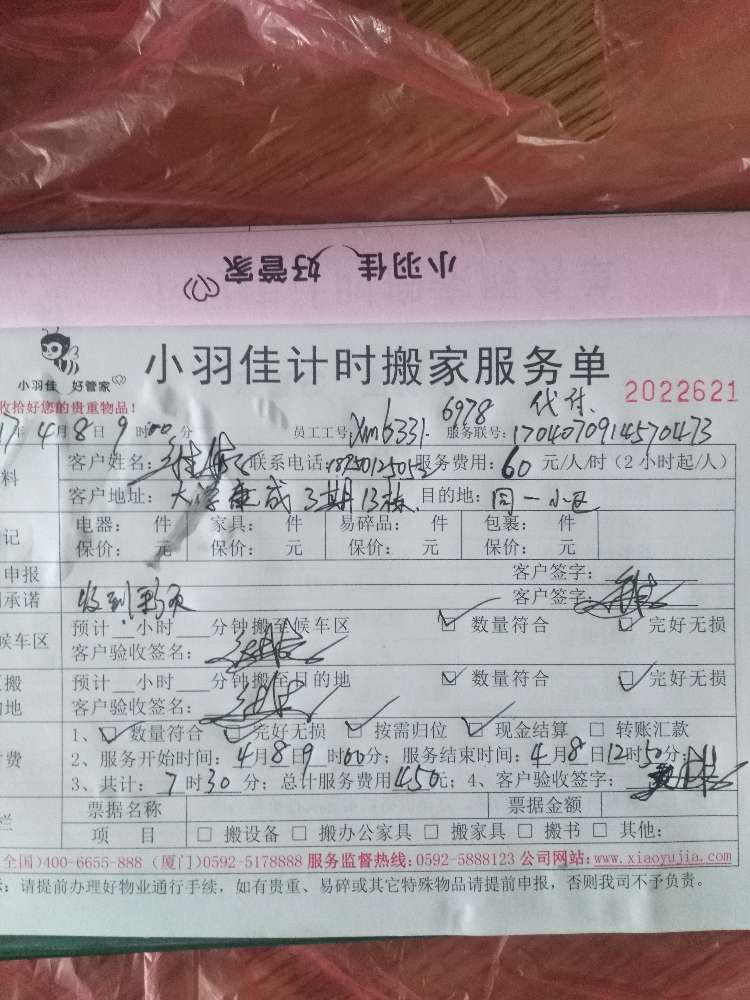 小羽佳 好管家
小羽佳 好管家
小羽佳计时搬家服务单
2022621
收拾好您的贵重物品！
6978 代付
年4月8日9时00分 员工工号：xm6331 服务联号：1704070914570473
料
客户姓名： 联系电话： 服务费用：60元/人/时（2小时起/人）
客户地址： 3期13栋 目的地：同一小区
记
电器： 件 家具： 件 易碎品： 件 包裹： 件
保价： 元 保价： 元 保价： 元 保价： 元
申报 客户签字：
承诺 收到 客户签字：
候车区
预计__小时__分钟搬至候车区 ☑ 数量符合 ☑ 完好无损
客户验收签名：
搬
预计__小时__分钟搬至目的地 ☑ 数量符合 ☑ 完好无损
的地 客户验收签名：
1、☑ 数量符合 ☑ 完好无损 ☑ 按需归位 ☑ 现金结算 □ 转账汇款
费 2、服务开始时间：4月8日9时00分；服务结束时间：4月8日12时50分；
3、共计：7时30分；总计服务费用450元；4、客户验收签字：
栏
票据名称 票据金额
项 目 □ 搬设备 □ 搬办公家具 □ 搬家具 □ 搬书 □ 其他：
全国）400-6655-888（厦门）0592-5178888 服务监督热线：0592-5888123 公司网站：www.xiaoyujia.com
：请提前办理好物业通行手续，如有贵重、易碎或其它特殊物品请提前申报，否则我司不予负责。